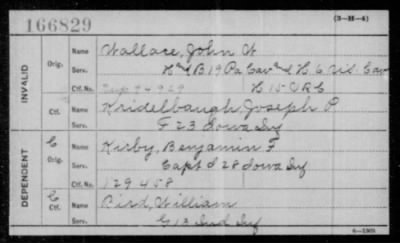 166829
(3-H-4)
INVALID
Orig. Name Wallace, John W
Serv. H & B 19 Pa Cav and H. 6 Vol. Cav
Ctf. No. 94929 H 15 VRC
Ctf. Name Kridelbaugh, Joseph P
Serv. F 23 Iowa Inf
DEPENDENT
C Orig. Name Kirby, Benjamin F
Serv. Capt d 28 Iowa Inf
Ctf. No. 129458
C Ctf. Name Bird, William
Serv. G 13 Ind Inf